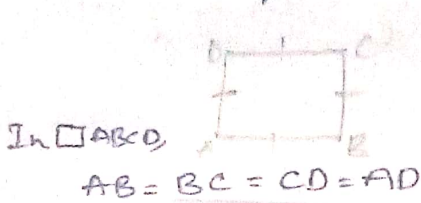 D C
A B
In □ABCD,
AB = BC = CD = AD